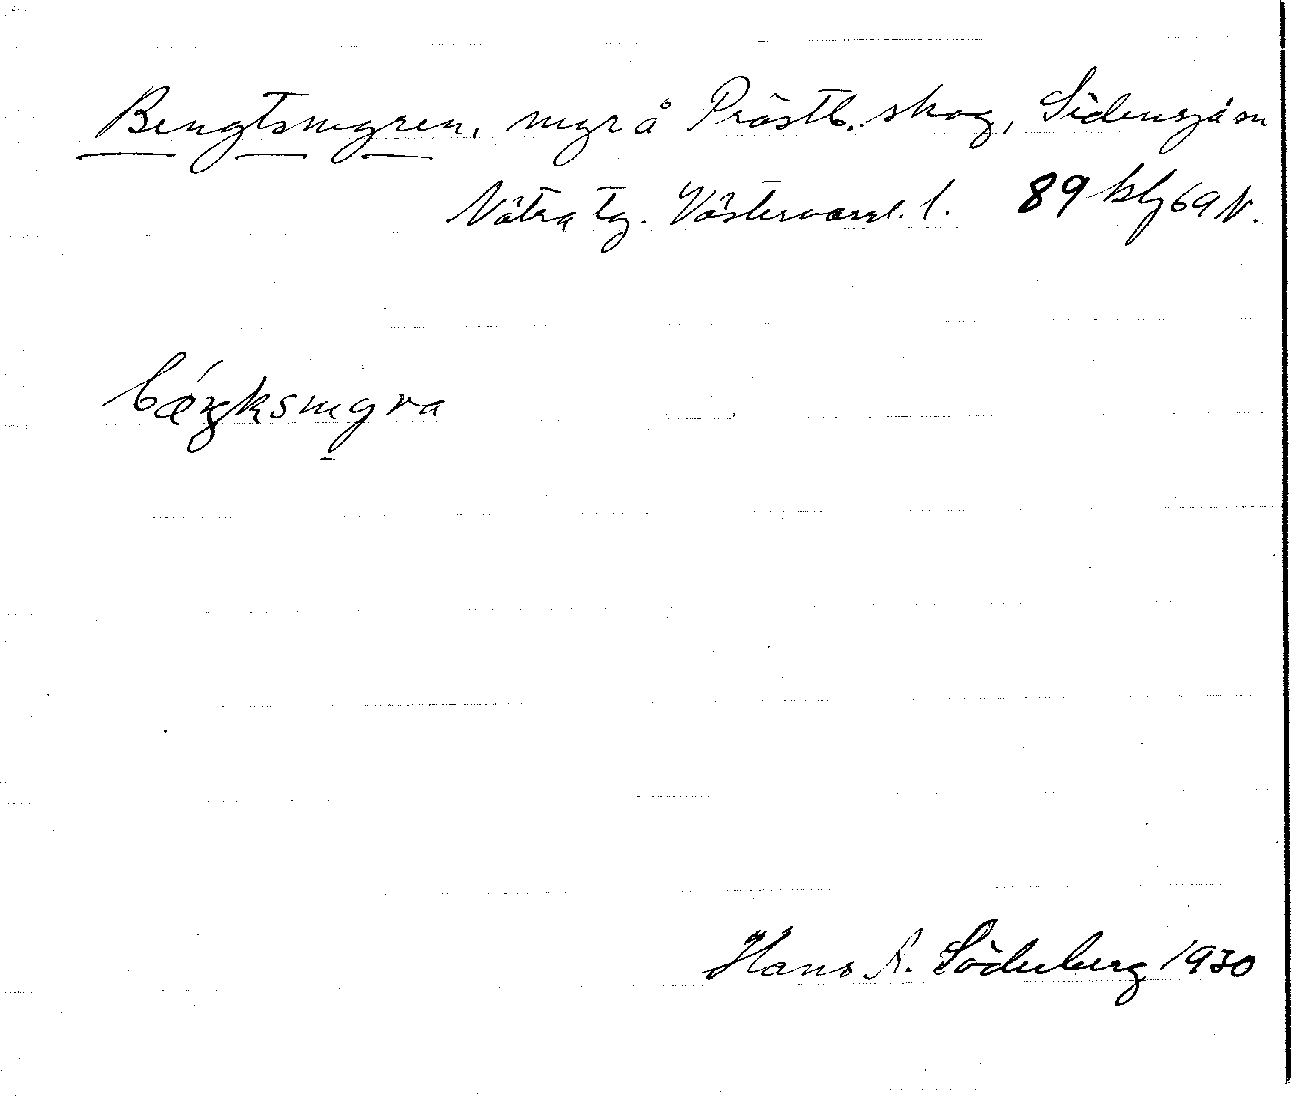 Bengtsmyren, myr å Prästb. skog, Sidensjö sn
Nätra tg. Västernorrl. l. 89 bly 69 N.
Hans R. Söderberg 1930